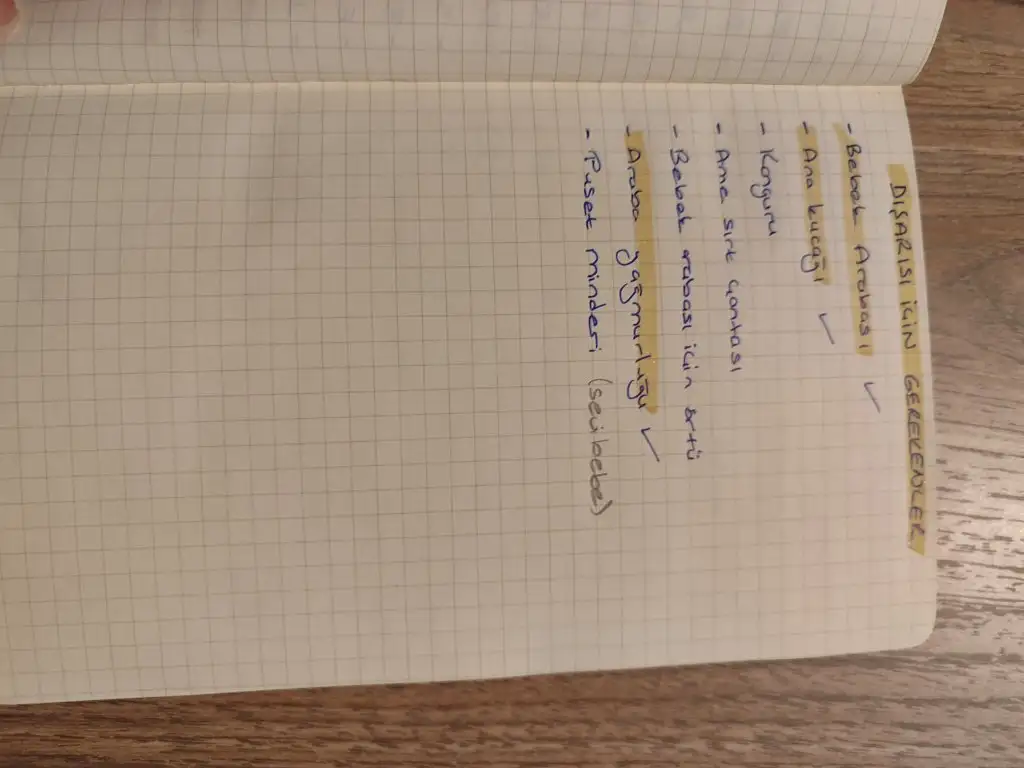 DIŞARISI İÇİN GEREKENLER
- Bebek Arabası ✓
- Ana kucağı ✓
- Kanguru
- Anne sırt çantası
- Bebek arabası için örtü
- Araba yağmurluğu ✓
- Puset minderi (sevibebe)